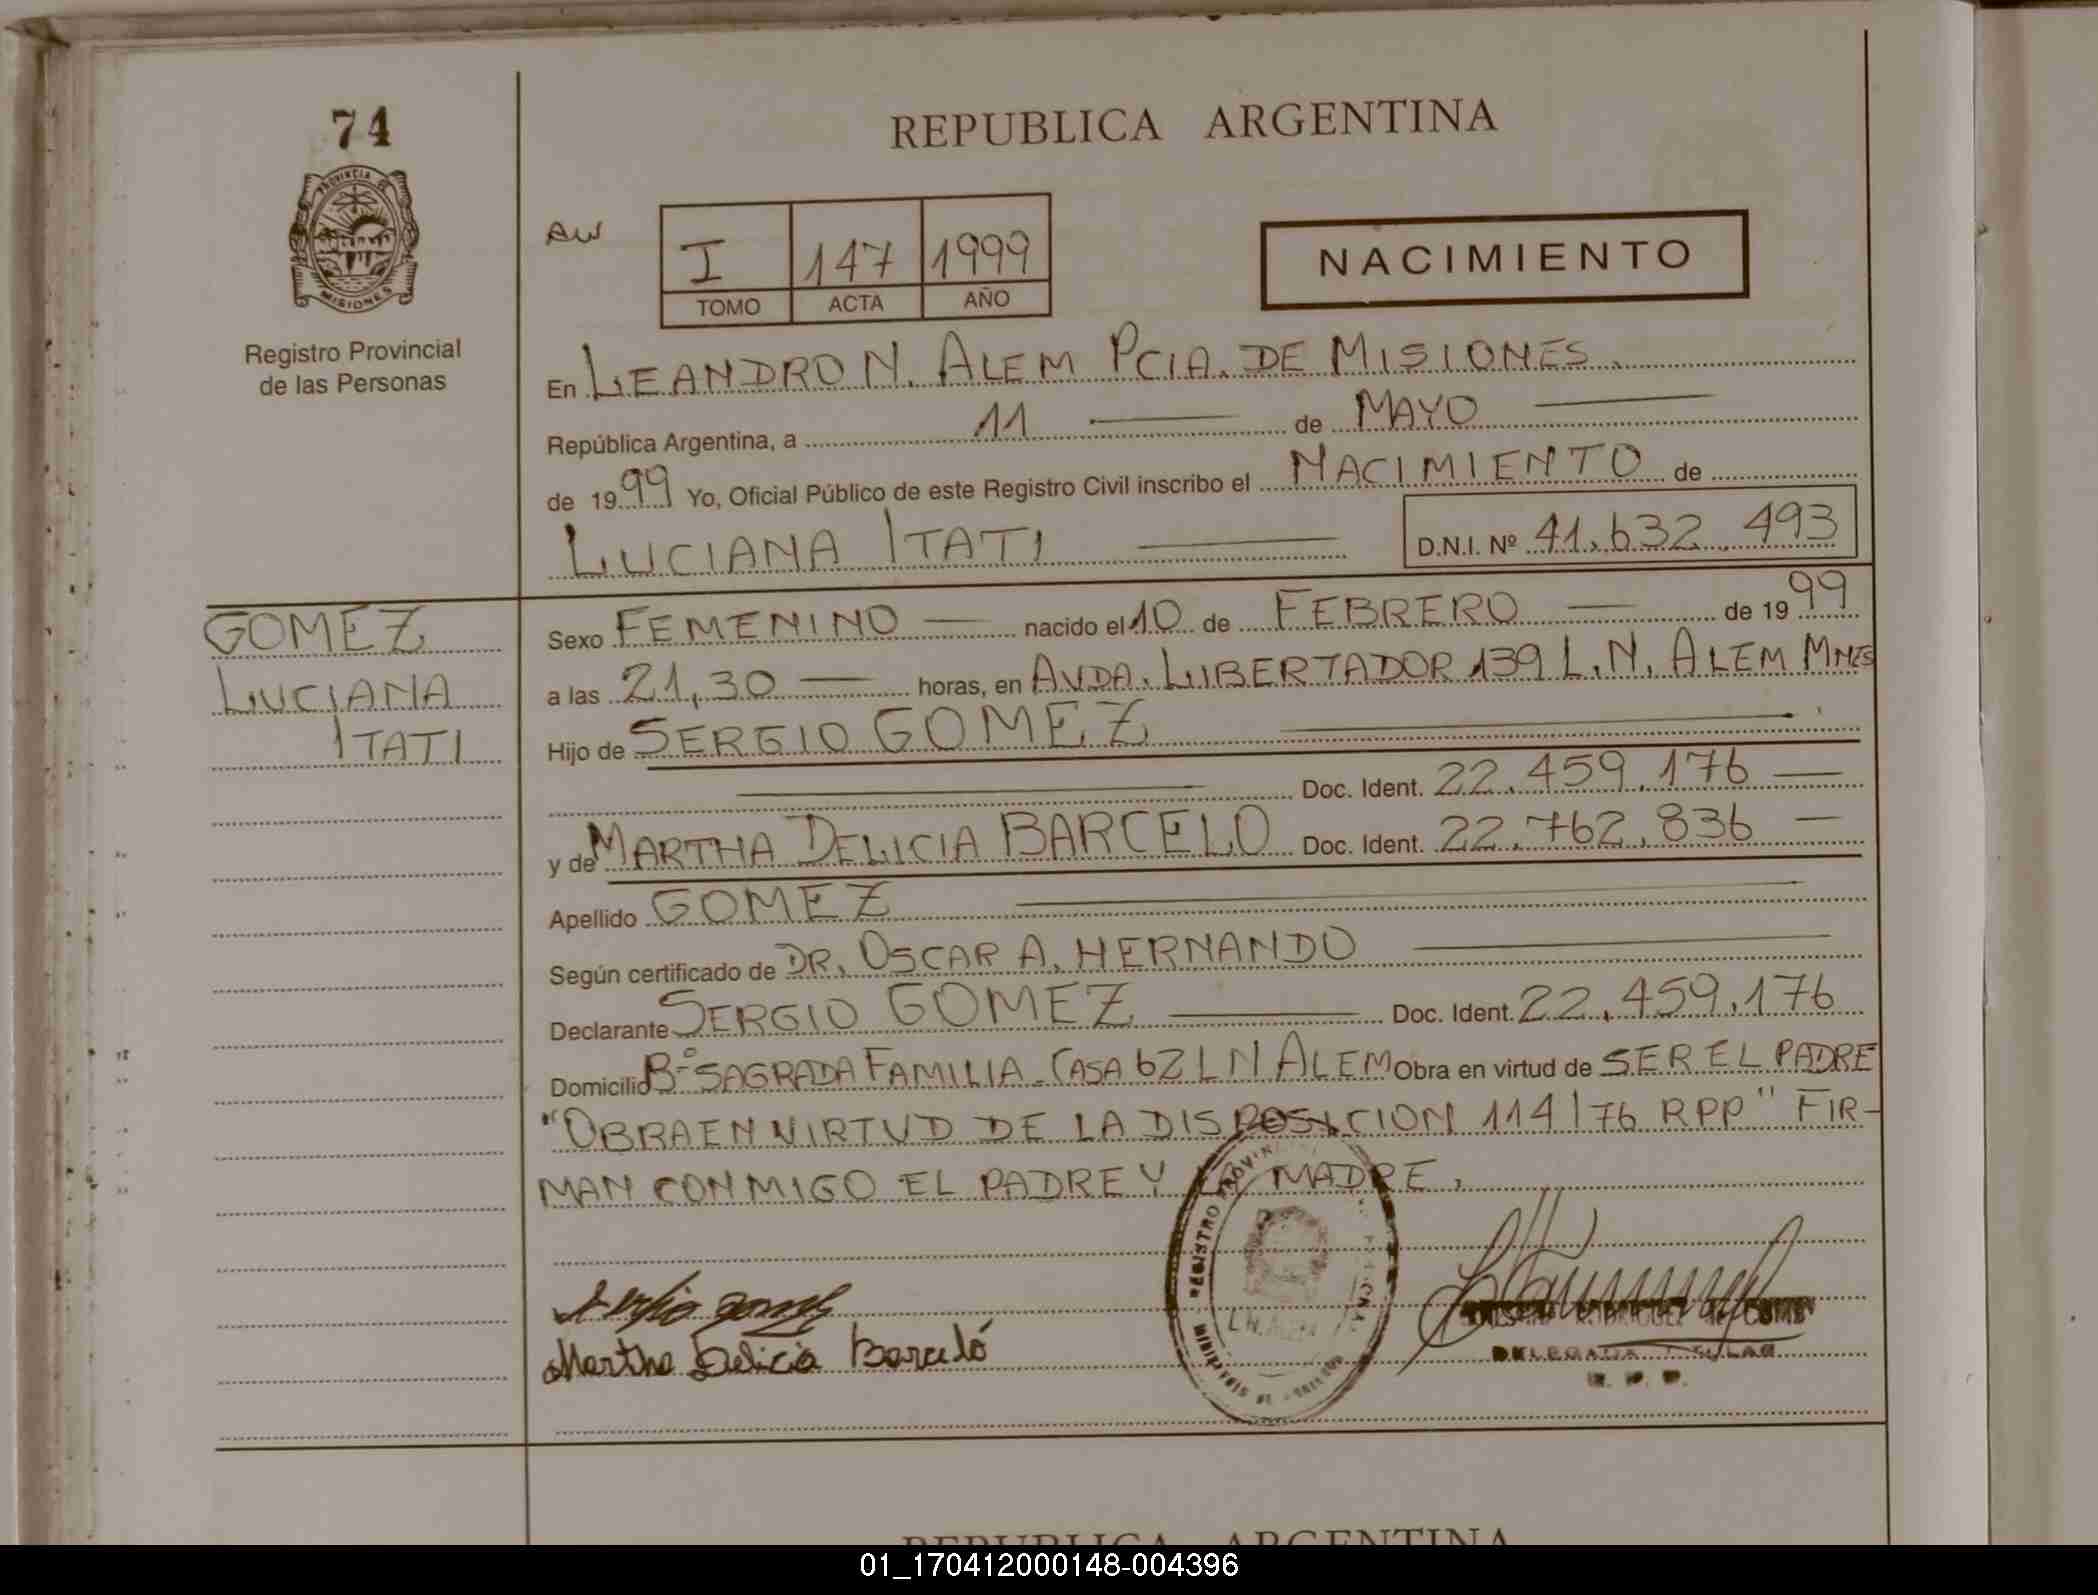 74
REPUBLICA ARGENTINA
PROVINCIA DE
MISIONES
Registro Provincial
de las Personas
AW
I 147 1999
TOMO ACTA AÑO
NACIMIENTO
En LEANDRO N. ALEM PCIA. DE MISIONES.
República Argentina, a 11 de MAYO
de 1999 Yo, Oficial Público de este Registro Civil inscribo el NACIMIENTO de
LUCIANA ITATI D.N.I. Nº 41.632.493
GOMEZ
LUCIANA
ITATI
Sexo FEMENINO nacido el 10 de FEBRERO de 1999
a las 21,30 horas, en AVDA. LIBERTADOR 139 L.N. ALEM MNES
Hijo de SERGIO GOMEZ
Doc. Ident. 22.459.176
y de MARTHA DELICIA BARCELO Doc. Ident. 22.762.836
Apellido GOMEZ
Según certificado de DR. OSCAR A. HERNANDO
Declarante SERGIO GOMEZ Doc. Ident. 22.459.176
Domicilio Bº SAGRADA FAMILIA. CASA 62 L N ALEM Obra en virtud de SER EL PADRE
"OBRA EN VIRTUD DE LA DISPOSICION 114/76 RPP" FIR-
MAN CONMIGO EL PADRE Y LA MADRE.
REGISTRO PROVIN
L.N. ALEM
MINISTERIO DE
Sergio Gomez
Martha Delicia Barceló
RODRIGUEZ DE
DELEGADA TITULAR
R. P. P.
REPUBLICA ARGENTINA
01_170412000148-004396